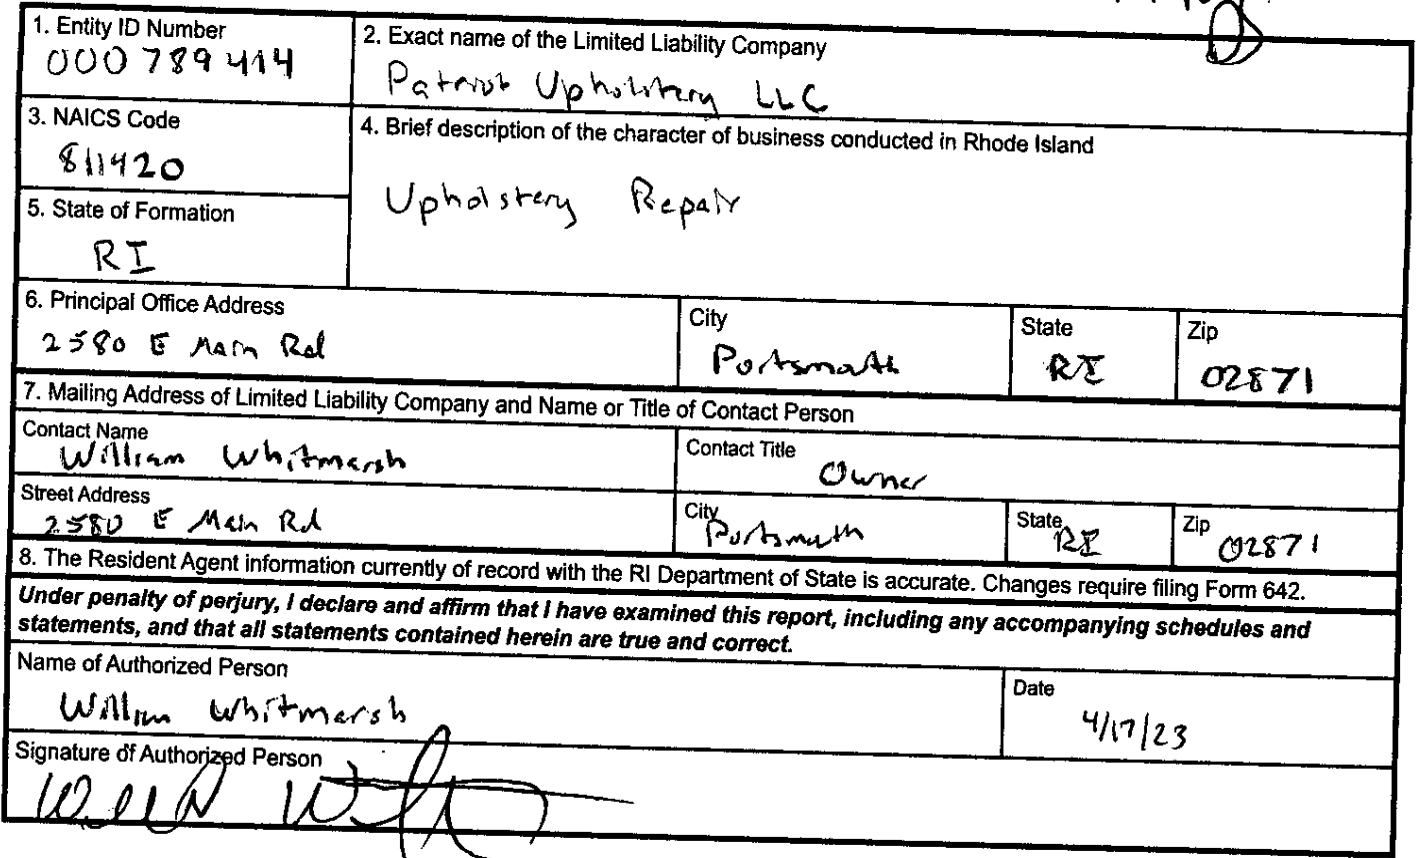 1. Entity ID Number
000789414
2. Exact name of the Limited Liability Company
Patriot Upholstery LLC
3. NAICS Code
811420
4. Brief description of the character of business conducted in Rhode Island
Upholstery Repair
5. State of Formation
RI
6. Principal Office Address
2580 E Main Rd
City
Portsmouth
State
RI
Zip
02871
7. Mailing Address of Limited Liability Company and Name or Title of Contact Person
Contact Name
William Whitmarsh
Contact Title
Owner
Street Address
2580 E Main Rd
City
Portsmouth
State
RI
Zip
02871
8. The Resident Agent information currently of record with the RI Department of State is accurate. Changes require filing Form 642.
Under penalty of perjury, I declare and affirm that I have examined this report, including any accompanying schedules and
statements, and that all statements contained herein are true and correct.
Name of Authorized Person
William Whitmarsh
Date
4/17/23
Signature of Authorized Person